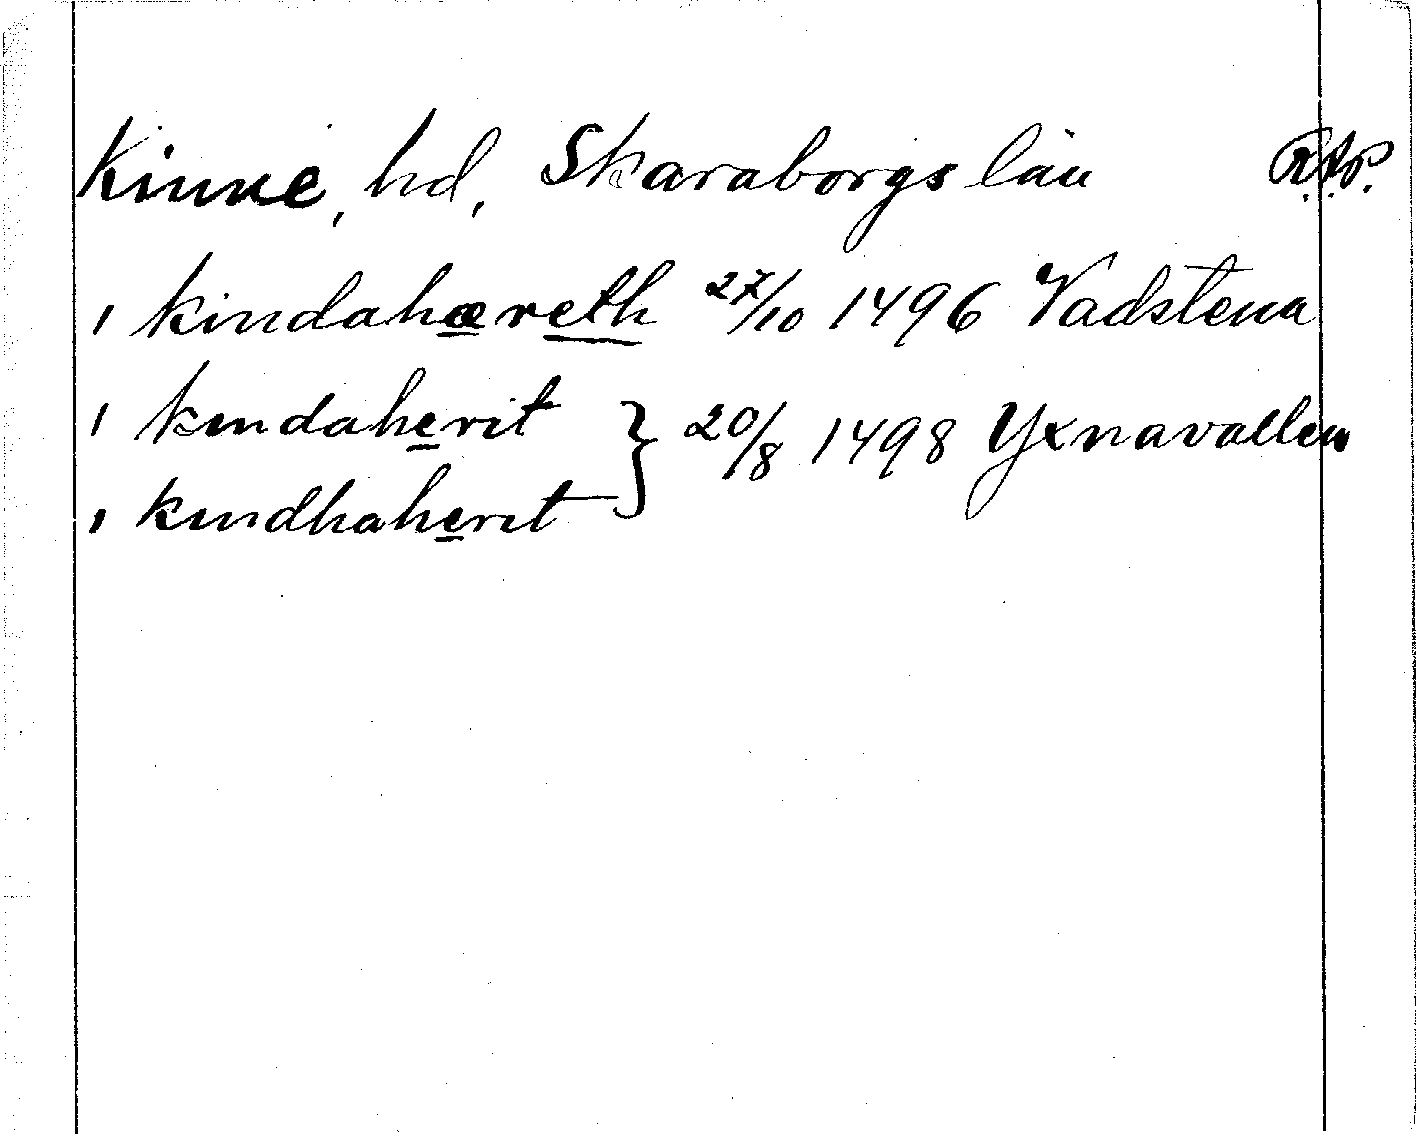 Kinne, hd, Skaraborgs län R.A.P.
i kindahæreth 27/10 1496 Vadstena
i kindaherit } 20/8 1498 Yxnavallen
i kindhaherit